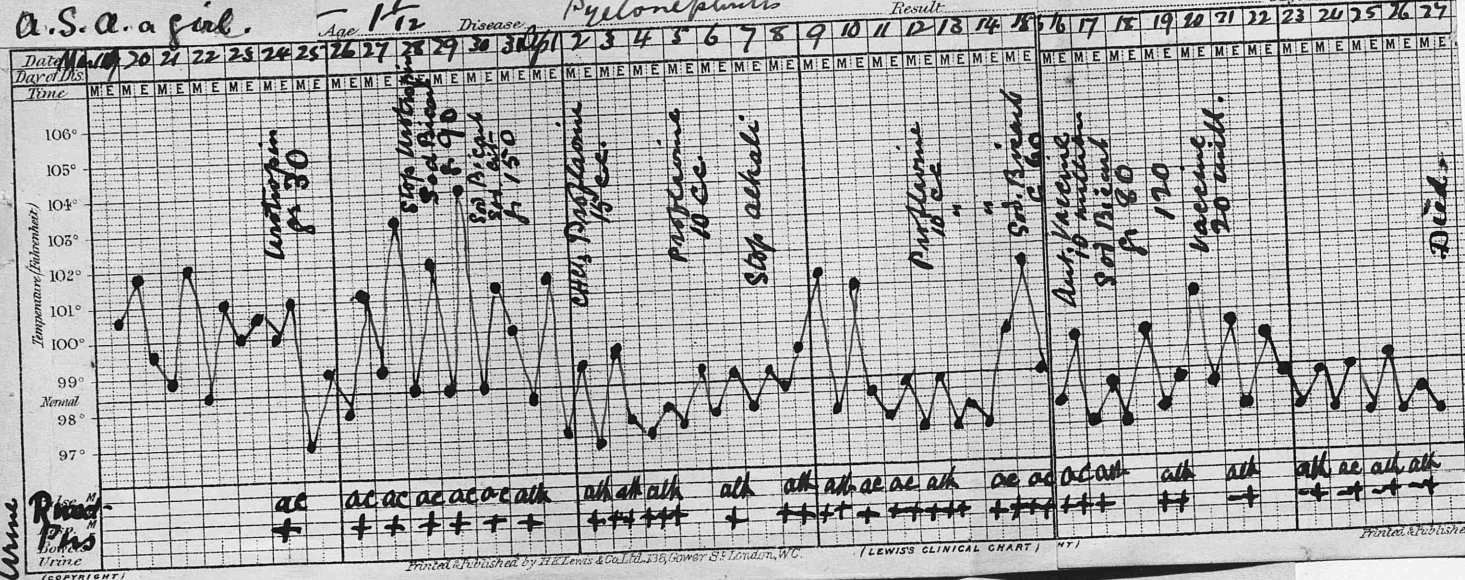 A.S.A. a girl. Age 1 1/12 Disease Pyelonephritis Result
Date Mar 19 20 21 22 23 24 25 26 27 28 29 30 31 Apl 1 2 3 4 5 6 7 8 9 10 11 12 13 14 15 16 17 18 19 20 21 22 23 24 25 26 27
Day of Dis.
Time M E M E M E M E M E M E M E M E M E M E M E M E M E M E M E M E M E M E M E M E M E M E M E M E M E M E M E M E M E M E M E M E M E M E M E M E M E M E M E M E
Temperature (Fahrenheit)
106°
105°
104°
103°
102°
101°
100°
99°
Normal
98°
97°
Urotropin
gr 30
Stop Urotropin
Sod Bicarb
gr 90
Sod Bicarb
Sod
gr 150
CHCl3 Proflavine
15 cc.
Proflavine
10 cc.
Stop alkali
Proflavine
10 cc
"
"
Sod. Bicarb
G 60
Aut. Vaccine
10 million
Sod Bicarb
gr 80
120
Vaccine
20 mill.
Died.
Urine
React- ac ac ac ac ac ac alk alk alk alk alk alk alk ac ac alk ac ac ac alk alk alk alk ac alk alk
Pus + + + + + + + + ++ +++ + ++ ++ + ++ +++ + +++ +++ ++ -+ -+ -+ -+ -+
Urine
Printed & Published by H.K. Lewis & Co. Ltd. 136, Gower St. London, W.C.
(LEWIS'S CLINICAL CHART)
HT)
Printed & Publishe
(COPYRIGHT)